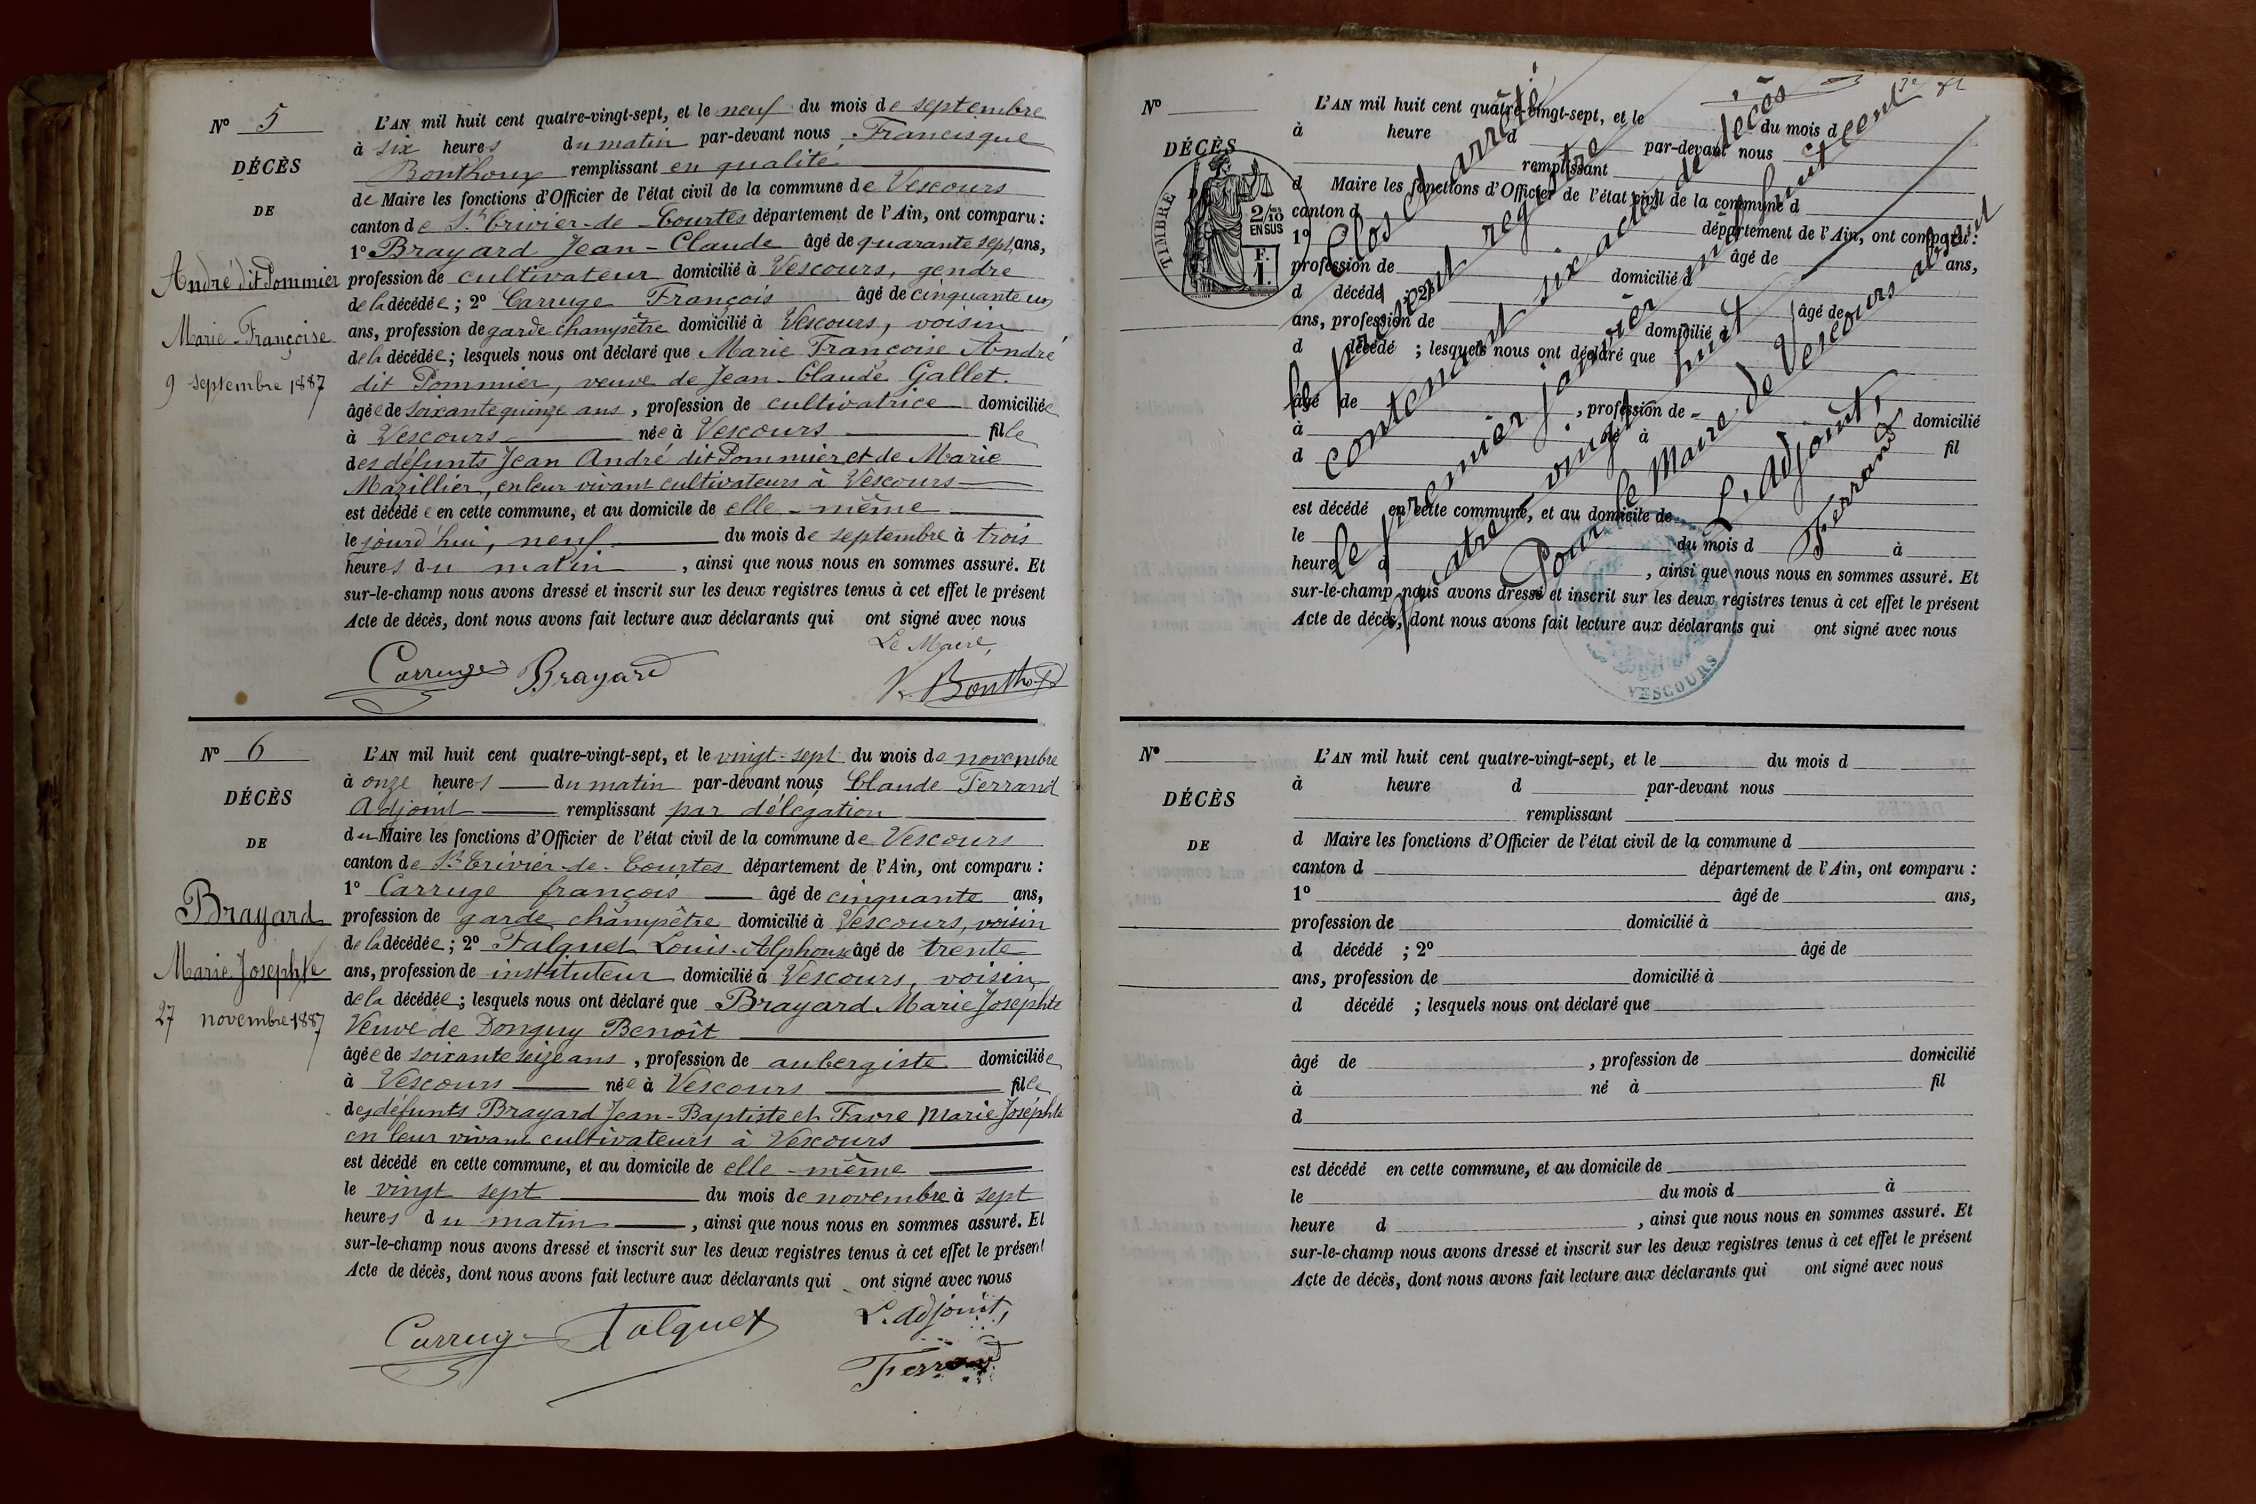 N° 5
DÉCÈS
DE
André dit Pommier
Marie-Françoise
9 septembre 1887
L'AN mil huit cent quatre-vingt-sept, et le neuf du mois de septembre
à six heures du matin par-devant nous, Francisque
Bonthoux remplissant en qualité
de Maire les fonctions d'Officier de l'état civil de la commune de Vescours
canton de St Trivier-de-Courtes département de l'Ain, ont comparu :
1° Brayard Jean-Claude âgé de quarante sept ans,
profession de cultivateur domicilié à Vescours, gendre
de la décédée ; 2° Carruge François âgé de cinquante un
ans, profession de garde champêtre domicilié à Vescours, voisin
de la décédée ; lesquels nous ont déclaré que Marie Françoise André
dit Pommier, veuve de Jean-Claude Gallet.
âgée de soixante quinze ans, profession de cultivatrice domiciliée
à Vescours née à Vescours fille
des défunts Jean André dit Pommier, et de Marie
Mazillier, en leur vivant cultivateurs à Vescours
est décédée en cette commune, et au domicile de elle-même
le jourd'hui, neuf du mois de septembre à trois
heures du matin, ainsi que nous nous en sommes assuré. Et
sur-le-champ nous avons dressé et inscrit sur les deux registres tenus à cet effet le présent
Acte de décès, dont nous avons fait lecture aux déclarants qui ont signé avec nous
Le Maire,
Carruge Brayard Bonthoux
N° 6
DÉCÈS
DE
Brayard
Marie Josephte
27 novembre 1887
L'AN mil huit cent quatre-vingt-sept, et le vingt-sept du mois de novembre
à onze heures du matin par-devant nous Claude Ferrand
Adjoint remplissant par délégation
du Maire les fonctions d'Officier de l'état civil de la commune de Vescours
canton de St Trivier-de-Courtes département de l'Ain, ont comparu :
1° Carruge françois âgé de cinquante ans,
profession de garde champêtre domicilié à Vescours, voisin
de la décédée ; 2° Falquet Louis-Alphonse âgé de trente
ans, profession de instituteur domicilié à Vescours, voisin
de la décédée ; lesquels nous ont déclaré que Brayard Marie Josephte
Veuve de Donguy Benoît
âgée de soixante seize ans, profession de aubergiste domiciliée
à Vescours née à Vescours fille
des défunts Brayard Jean-Baptiste et Favre Marie Joséphte
en leur vivant cultivateurs à Vescours
est décédé en cette commune, et au domicile de elle-même
le vingt sept du mois de novembre à sept
heures du matin, ainsi que nous nous en sommes assuré. Et
sur-le-champ nous avons dressé et inscrit sur les deux registres tenus à cet effet le présent
Acte de décès, dont nous avons fait lecture aux déclarants qui ont signé avec nous
L'adjoint,
Carruge Falquet Ferrand
N°
DÉCÈS
TIMBRE
2/10
EN SUS
F.
1.
L'AN mil huit cent quatre-vingt-sept, et le du mois d
à heure d par-devant nous
remplissant
d Maire les fonctions d'Officier de l'état civil de la commune d
canton d département de l'Ain, ont comparu :
1° âgé de ans,
profession de domicilié à
d décédé ; 2° âgé de
ans, profession de domicilié à
d décédé ; lesquels nous ont déclaré que
âgé de , profession de domicilié
à né à fil
d
est décédé en cette commune, et au domicile de
le du mois d à
heure d , ainsi que nous nous en sommes assuré. Et
sur-le-champ nous avons dressé et inscrit sur les deux registres tenus à cet effet le présent
Acte de décès, dont nous avons fait lecture aux déclarants qui ont signé avec nous
Clos et arrêté
le présent registre
contenant six actes de décès
le premier janvier mil huit cent
quatre-vingt huit
Pour le Maire de Vescours absent
L'Adjoint,
Ferrand
VESCOURS
N°
DÉCÈS
DE
L'AN mil huit cent quatre-vingt-sept, et le du mois d
à heure d par-devant nous
remplissant
d Maire les fonctions d'Officier de l'état civil de la commune d
canton d département de l'Ain, ont comparu :
1° âgé de ans,
profession de domicilié à
d décédé ; 2° âgé de
ans, profession de domicilié à
d décédé ; lesquels nous ont déclaré que
âgé de , profession de domicilié
à né à fil
d
est décédé en cette commune, et au domicile de
le du mois d à
heure d , ainsi que nous nous en sommes assuré. Et
sur-le-champ nous avons dressé et inscrit sur les deux registres tenus à cet effet le présent
Acte de décès, dont nous avons fait lecture aux déclarants qui ont signé avec nous